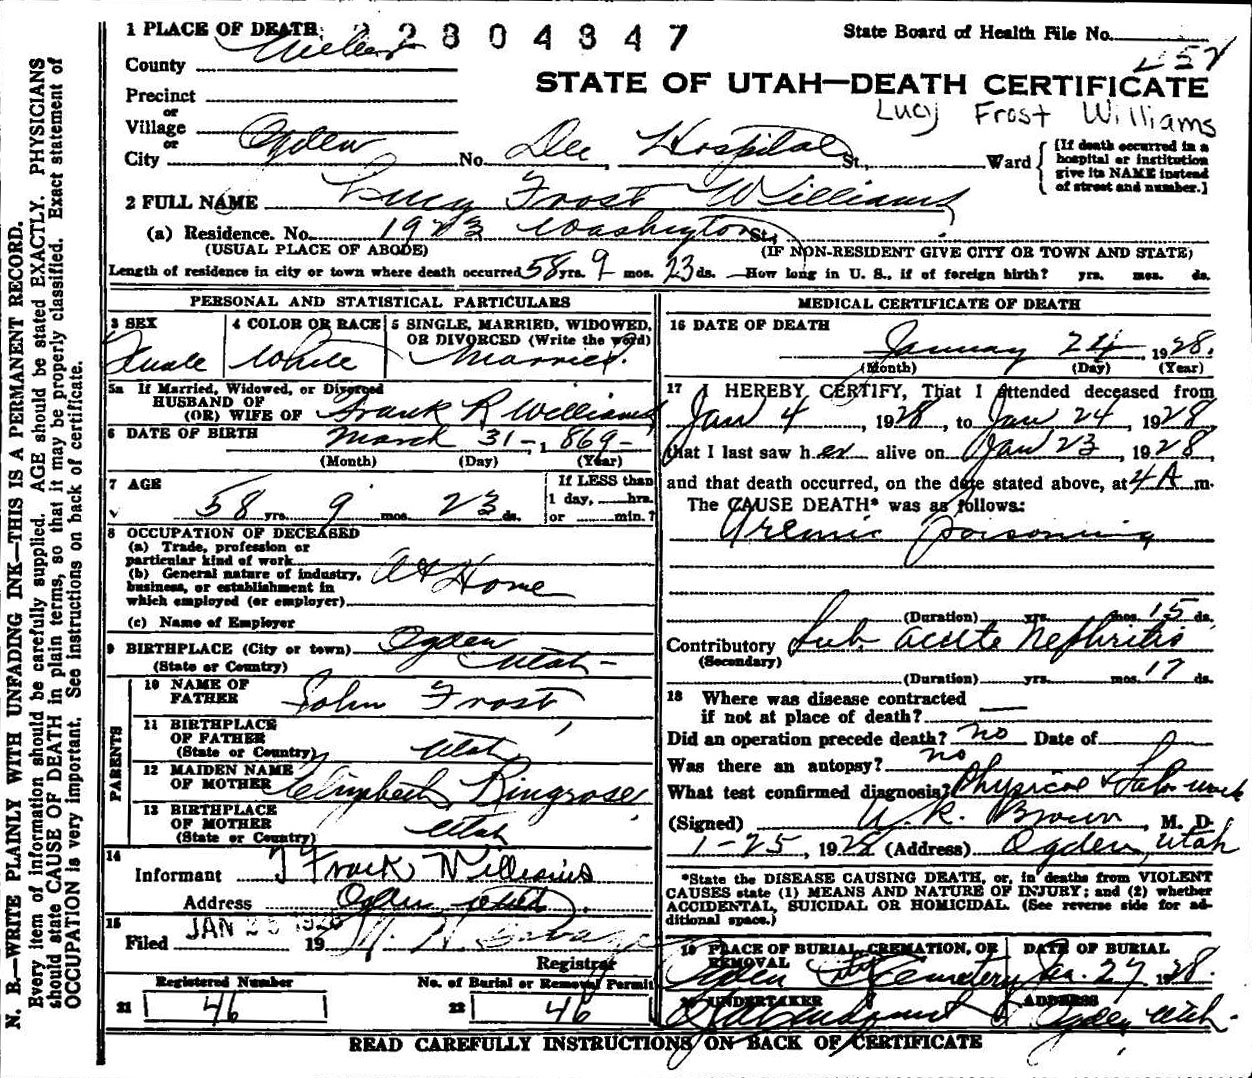 1 PLACE OF DEATH 2 2 8 0 4 3 4 7
State Board of Health File No.
County Weber
STATE OF UTAH—DEATH CERTIFICATE
Precinct
Lucy Frost Williams
or
Village
or
City Ogden No. Dee Hospital St., Ward
[If death occurred in a
hospital or institution
give its NAME instead
of street and number.]
2 FULL NAME Lucy Frost Williams
(a) Residence. No. 1923 Washington St.,
(USUAL PLACE OF ABODE) (IF NON-RESIDENT GIVE CITY OR TOWN AND STATE)
Length of residence in city or town where death occurred 58 yrs. 9 mos. 23 ds. How long in U. S., if of foreign birth? yrs. mos. ds.
PERSONAL AND STATISTICAL PARTICULARS
3 SEX 4 COLOR OR RACE 5 SINGLE, MARRIED, WIDOWED,
OR DIVORCED (Write the word)
Female White Married.
5a If Married, Widowed, or Divorced
HUSBAND OF
(OR) WIFE OF Frank R Williams
6 DATE OF BIRTH March 31 — 1869 —
(Month) (Day) (Year)
7 AGE
If LESS than
1 day, hrs.
or min.?
58 yrs. 9 mos. 23 ds.
8 OCCUPATION OF DECEASED
(a) Trade, profession or
particular kind of work
(b) General nature of industry,
business, or establishment in
which employed (or employer)
At Home
(c) Name of Employer
9 BIRTHPLACE (City or town) Ogden
(State or Country) Utah —
PARENTS
10 NAME OF
FATHER John Frost
11 BIRTHPLACE
OF FATHER
(State or Country) Utah
12 MAIDEN NAME
OF MOTHER Elizabeth Ringrose
13 BIRTHPLACE
OF MOTHER
(State or Country) Utah
14
Informant Frank Williams
Address Ogden Utah
15
Filed JAN 25 1928 19
Registrar
Registered Number No. of Burial or Removal Permit
21 46 22 46
MEDICAL CERTIFICATE OF DEATH
16 DATE OF DEATH
January 24, 1928.
(Month) (Day) (Year)
17 I HEREBY CERTIFY, That I attended deceased from
Jan 4, 1928, to Jan 24, 1928,
that I last saw her alive on Jan 23, 1928,
and that death occurred, on the date stated above, at 4 A m.
The CAUSE DEATH* was as follows:
Uremic poisoning
(Duration) yrs. mos. 15 ds.
Contributory Sub acute Nephritis
(Secondary)
(Duration) yrs. mos. 17 ds.
18 Where was disease contracted
if not at place of death? —
Did an operation precede death? no Date of
Was there an autopsy? no
What test confirmed diagnosis? Physical &
(Signed) Brown, M. D.
1-25, 1928 (Address) Ogden, Utah
*State the DISEASE CAUSING DEATH, or, in deaths from VIOLENT
CAUSES state (1) MEANS AND NATURE OF INJURY; and (2) whether
ACCIDENTAL, SUICIDAL OR HOMICIDAL. (See reverse side for ad-
ditional space.)
19 PLACE OF BURIAL, CREMATION, OR
REMOVAL
DATE OF BURIAL
Ogden City Cemetery Jan. 27 1928.
20 UNDERTAKER ADDRESS
Ogden Utah.
READ CAREFULLY INSTRUCTIONS ON BACK OF CERTIFICATE
N. B.—WRITE PLAINLY WITH UNFADING INK—THIS IS A PERMANENT RECORD.
Every item of information should be carefully supplied. AGE should be stated EXACTLY. PHYSICIANS
should state CAUSE OF DEATH in plain terms, so that it may be properly classified. Exact statement of
OCCUPATION is very important. See instructions on back of certificate.